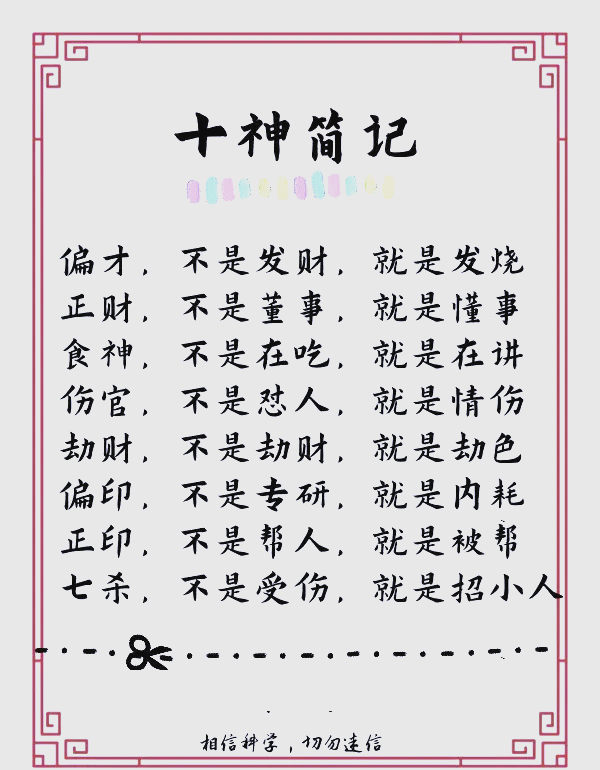 十神简记
偏才，不是发财，就是发烧
正财，不是董事，就是懂事
食神，不是在吃，就是在讲
伤官，不是怼人，就是情伤
劫财，不是劫财，就是劫色
偏印，不是专研，就是内耗
正印，不是帮人，就是被帮
七杀，不是受伤，就是招小人
相信科学，切勿迷信